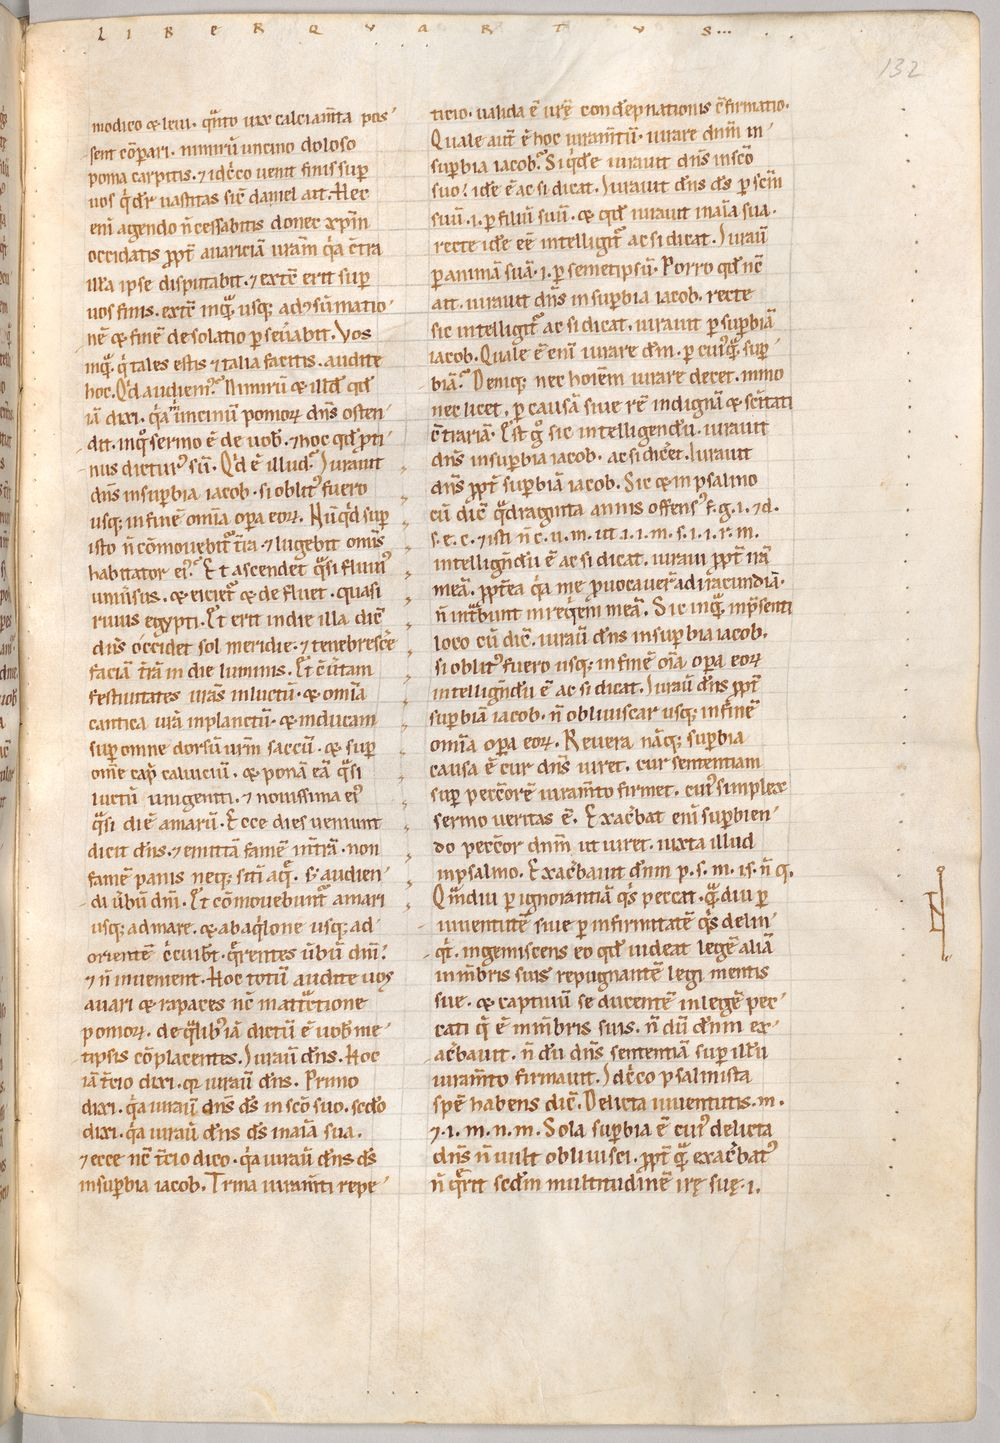 LIBER QVARTVS...
132
modico & leui. qnͣto uix calciam̄ta pos
sent cōparari. nimirū uncino doloso
poma carpitis. ⁊ idc̄co uenit finis sup̄
uos qͥ dr̄ uastitas sic̄ daniel ait. Hec
eni agendo n̄ cessabitis donec xp̄m
occidatis ꝓpt̄ auariciā ur̄am qͥa c̄tra
illā ipse disputabit. ⁊ extē erit sup̄
uos finis. extē inqͣ usq; ad ꝯsūmatio
nē & finē desolatio ꝑseūabit. Vos
inqͣ. qͥ tales estis ⁊ talia facitis. audite
hoc. Qͥd audiem᷒. Nimirū & illd̄ qd̄
iā dixi. qͥa uncinū pomoꝝ dn̄s osten
dit. inqͦ sermo ē de uob̄. ⁊ hoc qd̄ ꝓti
nus dictur᷒ sū. Qͥd ē illud. Iurauit
dn̄s in supbia iacob. si oblit᷒ fuero
usq; in finē omia opa eoꝝ. Nūqͥd sup
isto n̄ cōmouebitͬ tr̄a. ⁊ lugebit omīs
habitator ei᷒. Et ascendet qͣsi fluui᷒
uniūsus. & eicietͬ & defluet. quasi
riuus egypti. Et erit in die illa dic̄
dn̄s occidet sol meridie. ⁊ tenebrescē
faciā tr̄ā in die luminis. Et c̄ūtam
festiuitates ur̄as in luctū. & omia
cantica ur̄a in planctū. & inducam
sup omne dorsū ur̄m saccū. & sup
om̄e cap̄ caluiciū. & ponā eā qͣsi
luctū unigeniti. ⁊ nouissima ei᷒
qͣsi diē amarū. Ecce dies ueniunt
dicit dn̄s. ⁊ emittā famē in tr̄ā. non
famē panis neq; sitī aqͤ. s; audien
di ūbū dn̄i. Et cōmouebuntͬ a mari
usq; ad mare. & ab aqͥlone usq; ad
orientē c̄cuib̄t. qͤrentes ūbū dn̄i.
⁊ n̄ inuenient. Hoc totū audite uos
auari & rapaces nc̄ maturͣctione
pomoꝝ. de qͥlib᷒ iā dictū ē uob̄ me
tipsis cōplacentes. Iuraū dn̄s. Hoc
iā t̄cio dixi. qꝛ iuraū dn̄s. Primo
dixi. qͥa iuraū dn̄s ds̄ in sc̄o suo. scd̄o
dixi. qͥa iuraū dn̄s ds̄ in aīa sua.
⁊ ecce nc̄ t̄cio dico. qͥa iuraū dn̄s ds̄
in supbia iacob. Trina iuram̄ti repe
ticio. ualida ē ur̄ę condēpnationis c̄firmatio.
Quale aut̄ ē hoc iuram̄tū. iurare dn̄m in
supbia iacob. Siqͥdē iurauit dn̄s in sc̄o
suo. idē ē ac si dicat. Iurauit dn̄s ds̄ ꝑ sc̄m
suū .i. ꝑ filiū suū. & qd̄ iurauit in aīa sua.
recte idē eē intelligitͬ ac si dicat. Iuraū
ꝑ animā suā .i. ꝑ semetipsū. Porro qd̄ nc̄
ait. iurauit dn̄s in supbia iacob. recte
sic intelligitͬ ac si dicat. iurauit ꝑ supbiā
iacob. Quale ē eni iurare dn̄m. ꝑ cui᷒qͣ sup
biā. Deniq; nec hoīem iurare decet. immo
nec licet, ꝑ causā siue rē indignā & sc̄itati
c̄trariā. Est gͦ sic intelligendū. iurauit
dn̄s in supbia iacob. ac si dicet. Iurauit
dn̄s ꝓpt̄ supbiā iacob. Sic & in psalmo
cū dic̄ qͣdraginta annis offens᷒ f. g. i. ⁊ d.
s. e. c. ⁊ isti n̄ c. u. m. ut i. i. m. s. i. i. r. m.
intellign̄dū ē ac si dicat. iuraui ꝓpt̄ irā
meā. ꝓpt̄ea qͥa me ꝓuocauer̄ ad iracundiā.
n̄ intͣbunt in reqͥem meā. Sic inqͣ. in p̄senti
loco cū dic̄. iuraū dn̄s in supbia iacob.
si oblit᷒ fuero usq; in finē oīa opa eoꝝ
intellign̄dū ē ac si dicat. Iuraū dn̄s ꝓpt̄
supbiā iacob. n̄ obliuiscar usq; in finē
omia opa eoꝝ. Reuera nāq; supbia
causa ē cur dn̄s iuret. cur sententiam
sup peccorē iuram̄to firmet. cui᷒ simplex
sermo ueritas ē. Exac̄bat eni supbien
do pecc̄or dn̄m ut iuret. iuxta illud
in psalmo. Exac̄bauit dn̄m p. s. m. is. n̄ q.
Qͣmdiu ꝑ ignorantiā qͥs peccat. qͣdiu ꝑ
iuuentutē siue ꝑ infirmitatē qͥs delin
qͥt. ingemiscens eo qd̄ uideat legē aliā
in mb̄ris suis repugnantē legi mentis
sue. & captiuū se ducentē in legē pec
cati qͤ ē in mb̄ris suis. n̄ dū dn̄m ex
ac̄bauit. n̄ dū dn̄s sententiā sup illū
iuram̄to firmauit. Idc̄co psalmista
spē habens dic̄. Delicta iuuentutis. m.
⁊ .i. m. n. m. Sola supbia ē cui᷒ delicta
dn̄s n̄ uult obliuisci. ꝓpt̄ qͣ exac̄bat᷒
n̄ qͤrit scd̄m multitudinē irę suę .i.